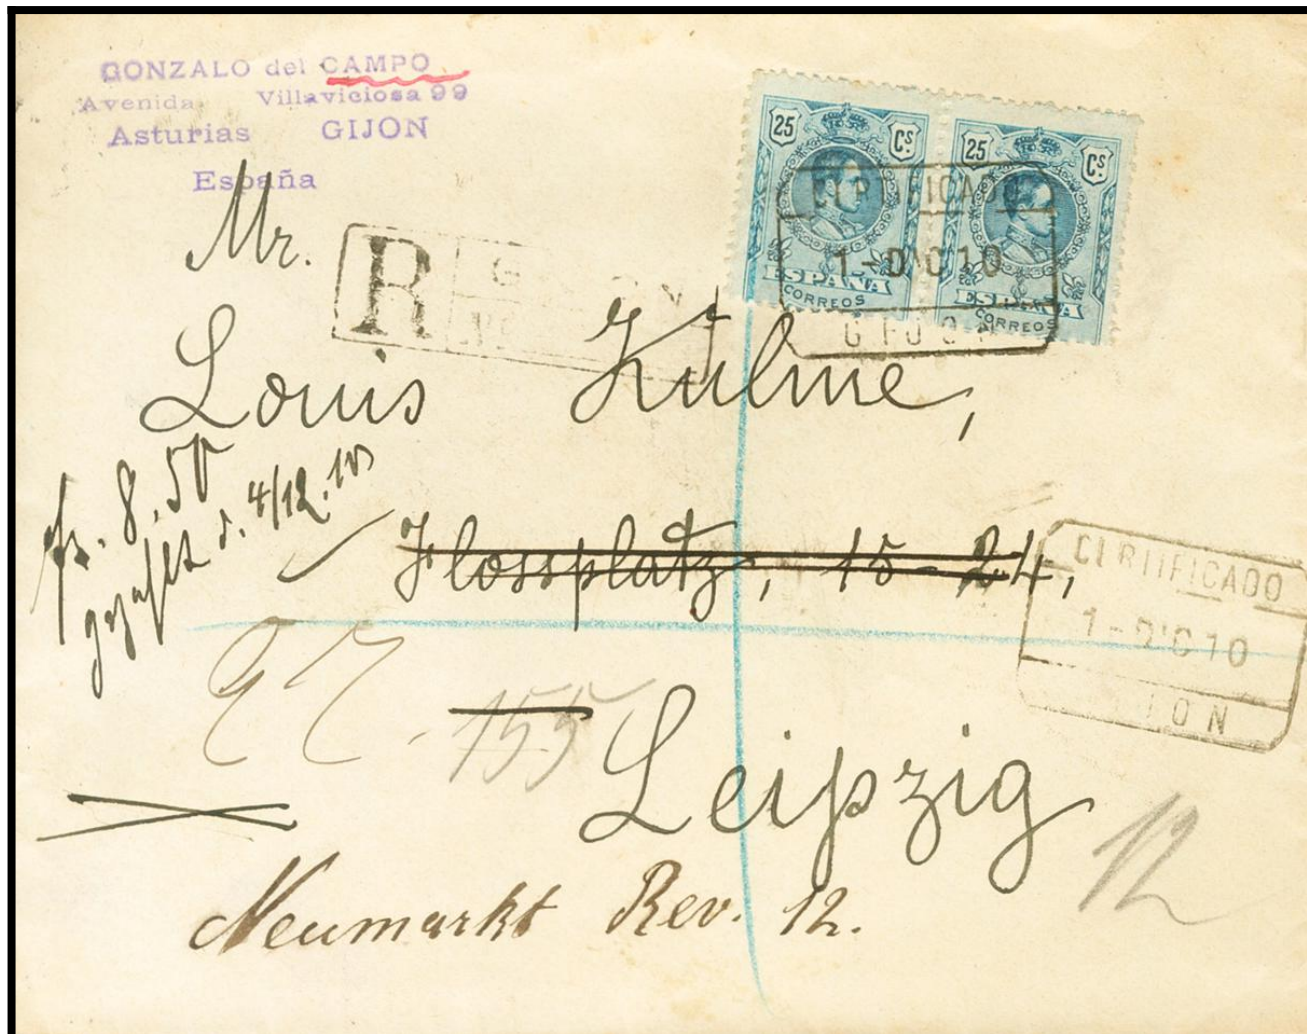 GONZALO del CAMPO
Avenida Villaviciosa 99
Asturias GIJON
España
25 Cs
25 Cs
ESPAÑA
CORREOS
ESPAÑA
CORREOS
CERTIFICADO
1-DIC10
GIJON
Mr.
R
Louis Kulme,
fr. 8.50
4/12.10
Flossplatz, 15-24,
CERTIFICADO
1-DIC10
155
Leipzig
12
Neumarkt Rev. 12.